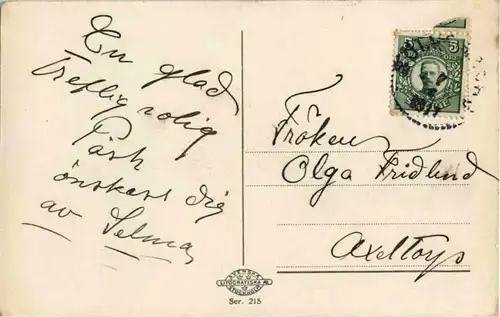 En glad
treflig rolig
Påsk
önskas dig
av Selma
Fröken
Olga Fridlund
Axeltorp
5
SVENSKA
LITOGRAFISKA AB.
STOCKHOLM
Ser. 215